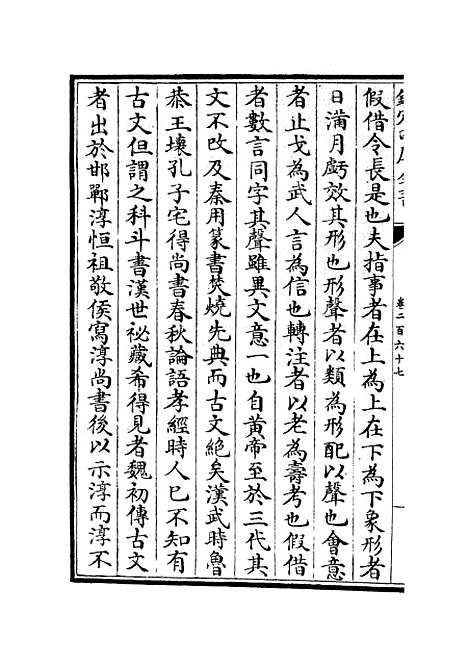 卷二百六十七
假借令長是也夫指事者在上為上在下為下象形者
日滿月虧效其形也形聲者以類為形配以聲也會意
者止戈為武人言為信也轉注者以老為壽考也假借
者數言同字其聲雖異文意一也自黃帝至於三代其
文不改及秦用篆書焚燒先典而古文絕矣漢武時魯
恭王壞孔子宅得尚書春秋論語孝經時人已不知有
古文但謂之科斗書漢世祕藏希得見者魏初傳古文
者出於邯鄲淳恒祖敬侯寫淳尚書後以示淳而淳不